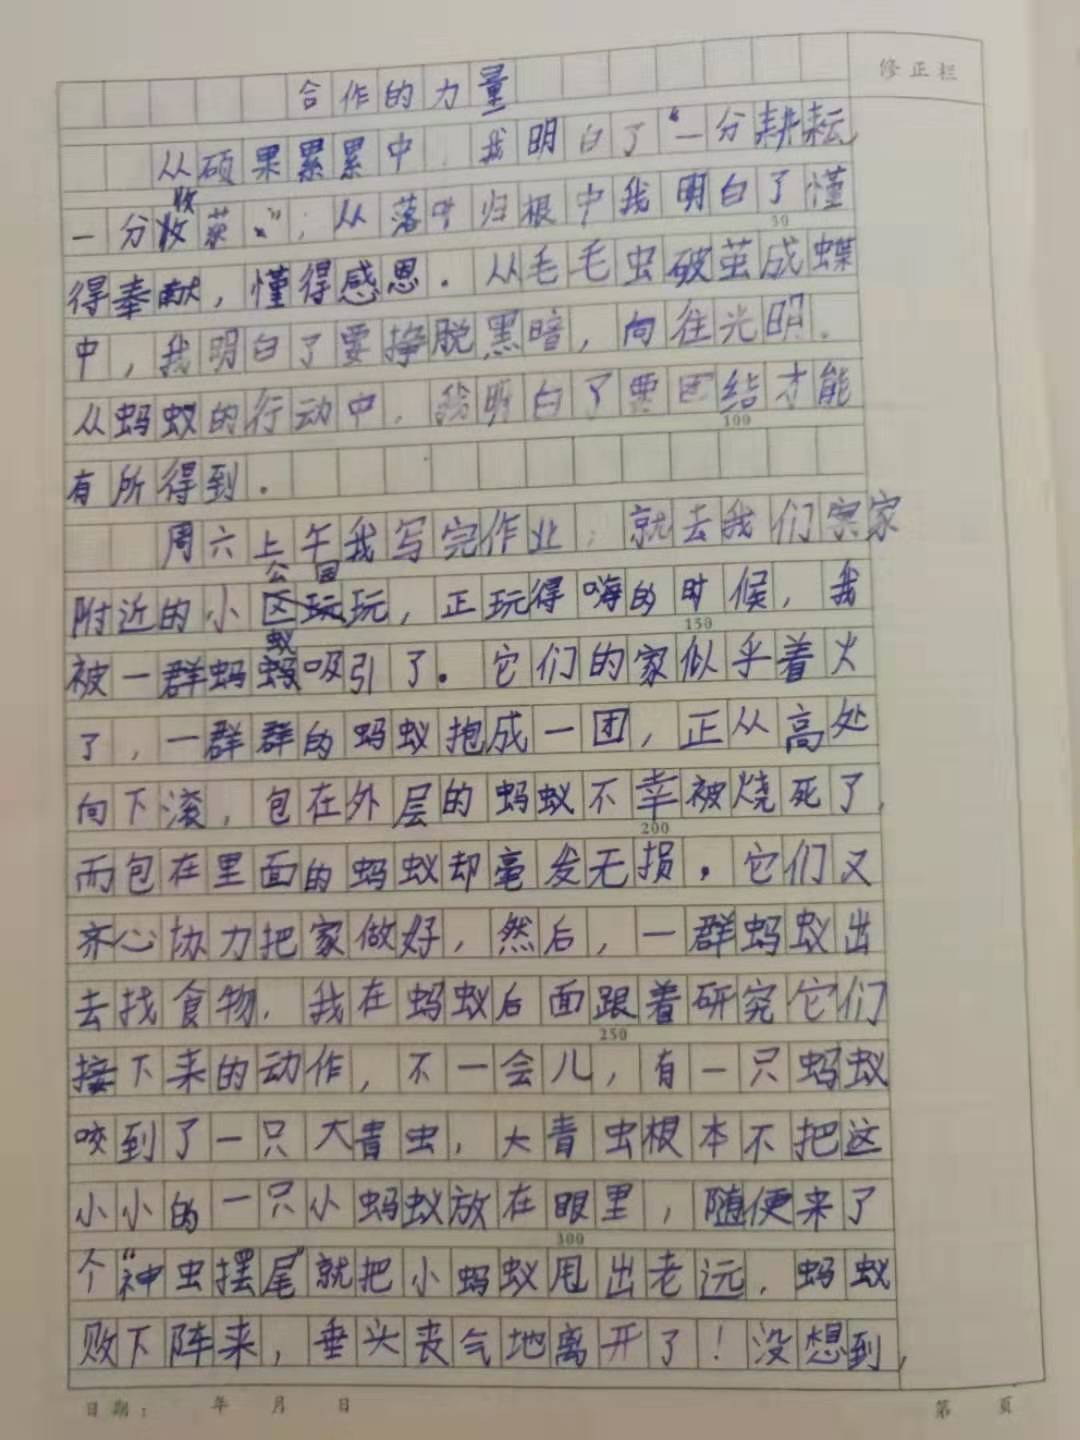 修正栏
合作的力量
从硕果累累中，我明白了“一分耕耘
一分收获”；从落叶归根中我明白了懂
50
得奉献，懂得感恩．从毛毛虫破茧成蝶
中，我明白了要挣脱黑暗，向往光明．
从蚂蚁的行动中，我明白了要团结才能
100
有所得到．
周六上午我写完作业，就去我们家
附近的小公园玩，正玩得嗨的时候，我
150
被一群蚂蚁吸引了．它们的家似乎着火
了，一群群的蚂蚁抱成一团，正从高处
向下滚，包在外层的蚂蚁不幸被烧死了，
200
而包在里面的蚂蚁却毫发无损．它们又
齐心协力把家做好，然后，一群蚂蚁出
去找食物．我在蚂蚁后面跟着研究它们
250
接下来的动作，不一会儿，有一只蚂蚁
咬到了一只大青虫，大青虫根本不把这
小小的一只小蚂蚁放在眼里，随便来了
300
个“神虫摆尾”就把小蚂蚁甩出老远．蚂蚁
败下阵来，垂头丧气地离开了！没想到，
日期： 年 月 日 第 页